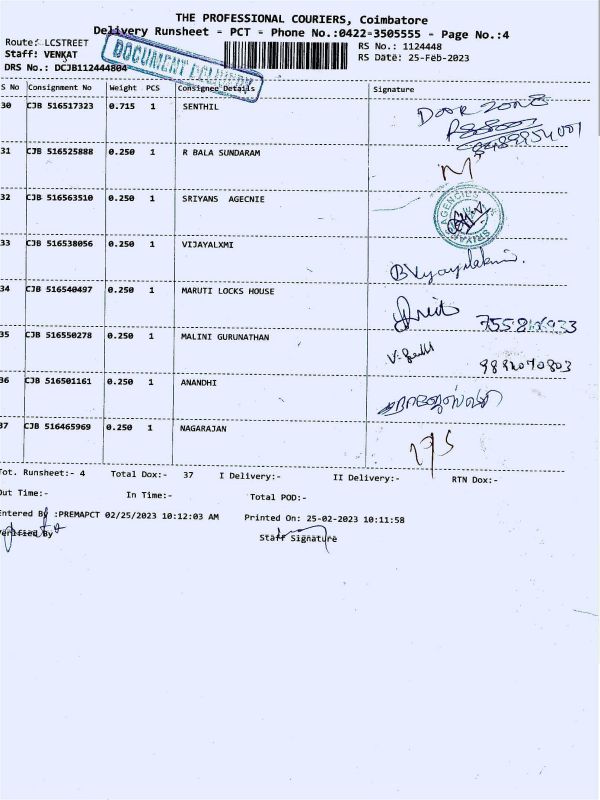 THE PROFESSIONAL COURIERS, Coimbatore
Delivery Runsheet - PCT - Phone No.:0422-3505555 - Page No.:4
Route: LCSTREET
RS No.: 1124448
Staff: VENKAT
RS Date: 25-Feb-2023
DRS No.: DCJB112444804
DOCUMENT DELIVERY
S No Consignment No Weight PCS Consignee Details Signature
30 CJB 516517323 0.715 1 SENTHIL DOOR ZONE
31 CJB 516525888 0.250 1 R BALA SUNDARAM
32 CJB 516563510 0.250 1 SRIYANS AGECNIE
33 CJB 516538056 0.250 1 VIJAYALXMI
34 CJB 516540497 0.250 1 MARUTI LOCKS HOUSE
35 CJB 516550278 0.250 1 MALINI GURUNATHAN
36 CJB 516501161 0.250 1 ANANDHI
37 CJB 516465969 0.250 1 NAGARAJAN
Tot. Runsheet:- 4 Total Dox:- 37 I Delivery:- II Delivery:- RTN Dox:-
Out Time:- In Time:- Total POD:-
Entered By :PREMAPCT 02/25/2023 10:12:03 AM Printed On: 25-02-2023 10:11:58
Verified By Staff Signature